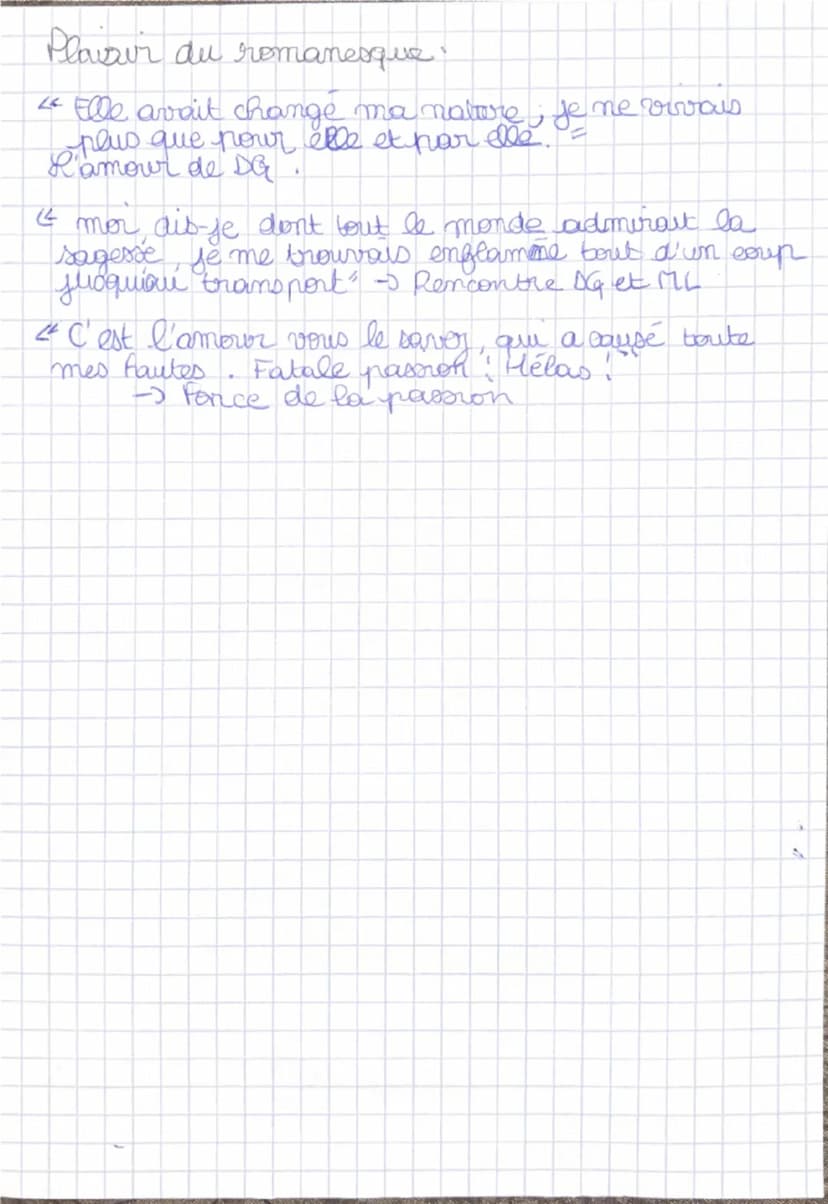 Plaisir du romanesque.
" Elle avait changé ma nature, je ne vivais
plus que pour elle et par elle. "
L'amour de DG.
" moi, dis-je dont tout le monde admirait la
sagesse, je me trouvais enflammé tout d'un coup
jusqu'au transport" -> Rencontre DG et ML
" C'est l'amour vous le savez, qui a causé toute
mes fautes. Fatale passion ! Hélas ! "
-> Force de la passion